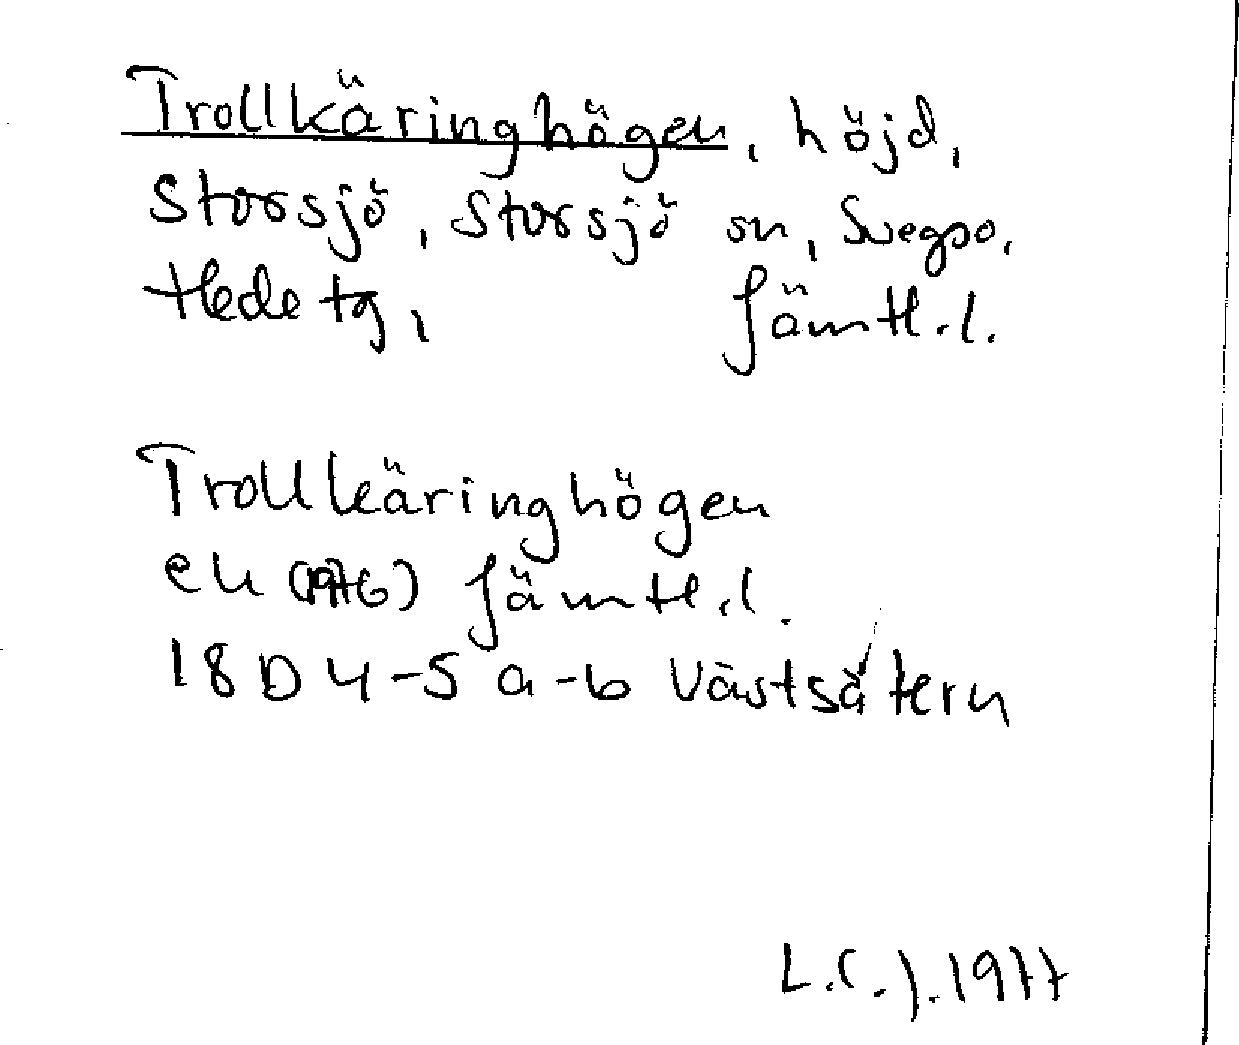 Trollkäringhögen, höjd,
Storsjö, Storsjö sn, Svegso.
Hede tg, Jämtl.l.
Trollkäringhögen
ek (1976) Jämtl.l.
18 D 4-5 a-b Västsätern
L.C.J. 1977